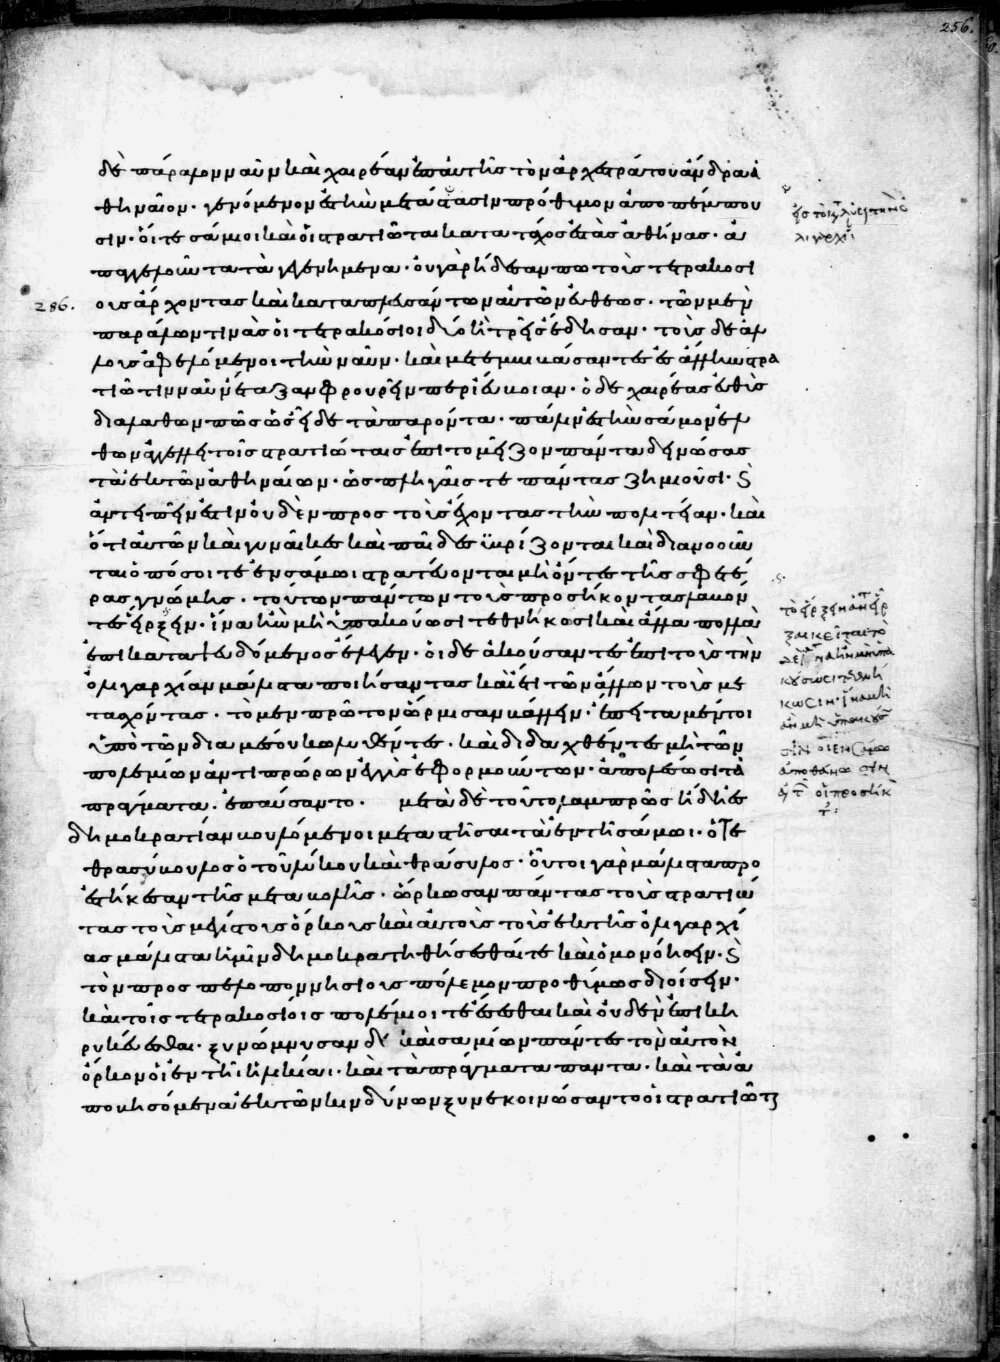 256.
δὲ πάραλον ναῦν καὶ χαιρέαν ἐπ' αὐτῆς τὸν ἀρχεστράτου ἄνδρα ἀ
θηναῖον. γενόμενον ἐς τὴν μετάστασιν πρόθυμον ἀποπέμπου
σιν. οἵ τε σάμιοι καὶ οἱ στρατιῶται κατὰ τάχος ἐς τὰς ἀθήνας. ἀ
παγγελοῦντα τὰ γεγενημένα. οὐ γὰρ ἤδεσάν πω τοὺς τετρακοσί
286.
ους ἄρχοντας καὶ καταπλευσάντων αὐτῶν εὐθέως. τῶν μὲν
παράλων τινὰς οἱ τετρακόσιοι δύο ἢ τρεῖς ἔδησαν. τοὺς δὲ ἄλ
λους ἀφελόμενοι τὴν ναῦν. καὶ μετεμβιβάσαντες ἐς ἄλλην στρα
τιῶτιν ναῦν ἔταξαν φρουρεῖν περὶ εὔβοιαν. ὁ δὲ χαιρέας εὐθὺς
διαλαθὼν πως ὡς εἶδε τὰ παρόντα. πάλιν ἐς τὴν σάμον ἐλ
θὼν ἀγγέλλει τοῖς στρατιώταις ἐπὶ τὸ μεῖζον πάντα δεινώσας
τὰ ἐκ τῶν ἀθηναίων. ὡς πληγαῖς τε πάντας ζημιοῦσι. καὶ
ἀντειπεῖν ἔστιν οὐδὲν πρὸς τοὺς ἔχοντας τὴν πολιτείαν. καὶ
ὅτι αὐτῶν καὶ γυναῖκες καὶ παῖδες ὑβρίζονται καὶ διανοοῦν
ται ὁπόσοι τε ἐν σάμωι στρατεύονται μὴ ὄντες τῆς σφετέ
ρας γνώμης. τούτων πάντων τοὺς προσήκοντας λαβόν
τες εἵρξειν. ἵνα ἢν μὴ ὑπακούωσι τεθνήκωσι καὶ ἄλλα πολλὰ
ἐπικαταψευδόμενος ἔλεγεν. οἱ δὲ ἀκούσαντες ἐπὶ τοὺς τὴν
ὀλιγαρχίαν μάλιστα ποιήσαντας καὶ ἔτι τῶν ἄλλων τοὺς με
τασχόντας. τὸ μὲν πρῶτον ὥρμησαν βάλλειν. ἔπειτα μέντοι
ὑπὸ τῶν διὰ μέσου κωλυθέντες. καὶ διδαχθέντες μὴ τῶν
πολεμίων ἀντιπρώρων ἐγγὺς ἐφορμούντων. ἀπολέσωσι τὰ
πράγματα. ἐπαύσαντο. μετὰ δὲ τοῦτο λαμπρῶς ἤδη ἐς
δημοκρατίαν βουλόμενοι μεταστῆσαι τὰ ἐν τῆι σάμωι. ὅ τε
θρασύβουλος ὁ τοῦ λύκου καὶ θράσυλος. οὗτοι γὰρ μάλιστα προ
εστήκεσαν τῆς μεταβολῆς. ὥρκωσαν πάντας τοὺς στρατιώ
τας τοὺς μεγίστους ὅρκους καὶ αὐτοὺς τοὺς ἐκ τῆς ὀλιγαρχί
ας μάλιστα ἦ μὴν δημοκρατηθήσεσθαί τε καὶ ὁμονοήσειν. καὶ
τὸν πρὸς πελοποννησίους πόλεμον προθύμως διοίσειν.
καὶ τοῖς τετρακοσίοις πολέμιοί τε ἔσεσθαι καὶ οὐδὲν ἐπικη
ρυκεύεσθαι. ξυνώμνυσαν δὲ καὶ σαμίων πάντες τὸν αὐτὸν
ὅρκον οἱ ἐν τῆι ἡλικίαι. καὶ τὰ πράγματα πάντα. καὶ τὰ ἀ
ποβησόμενα ἐκ τῶν κινδύνων ξυνεκοινώσαντο οἱ στρατιῶται
τὸ εἵρξειν ἀντὶ
κούσωσι τεθνή
κωσιν. ἵνα μὴ